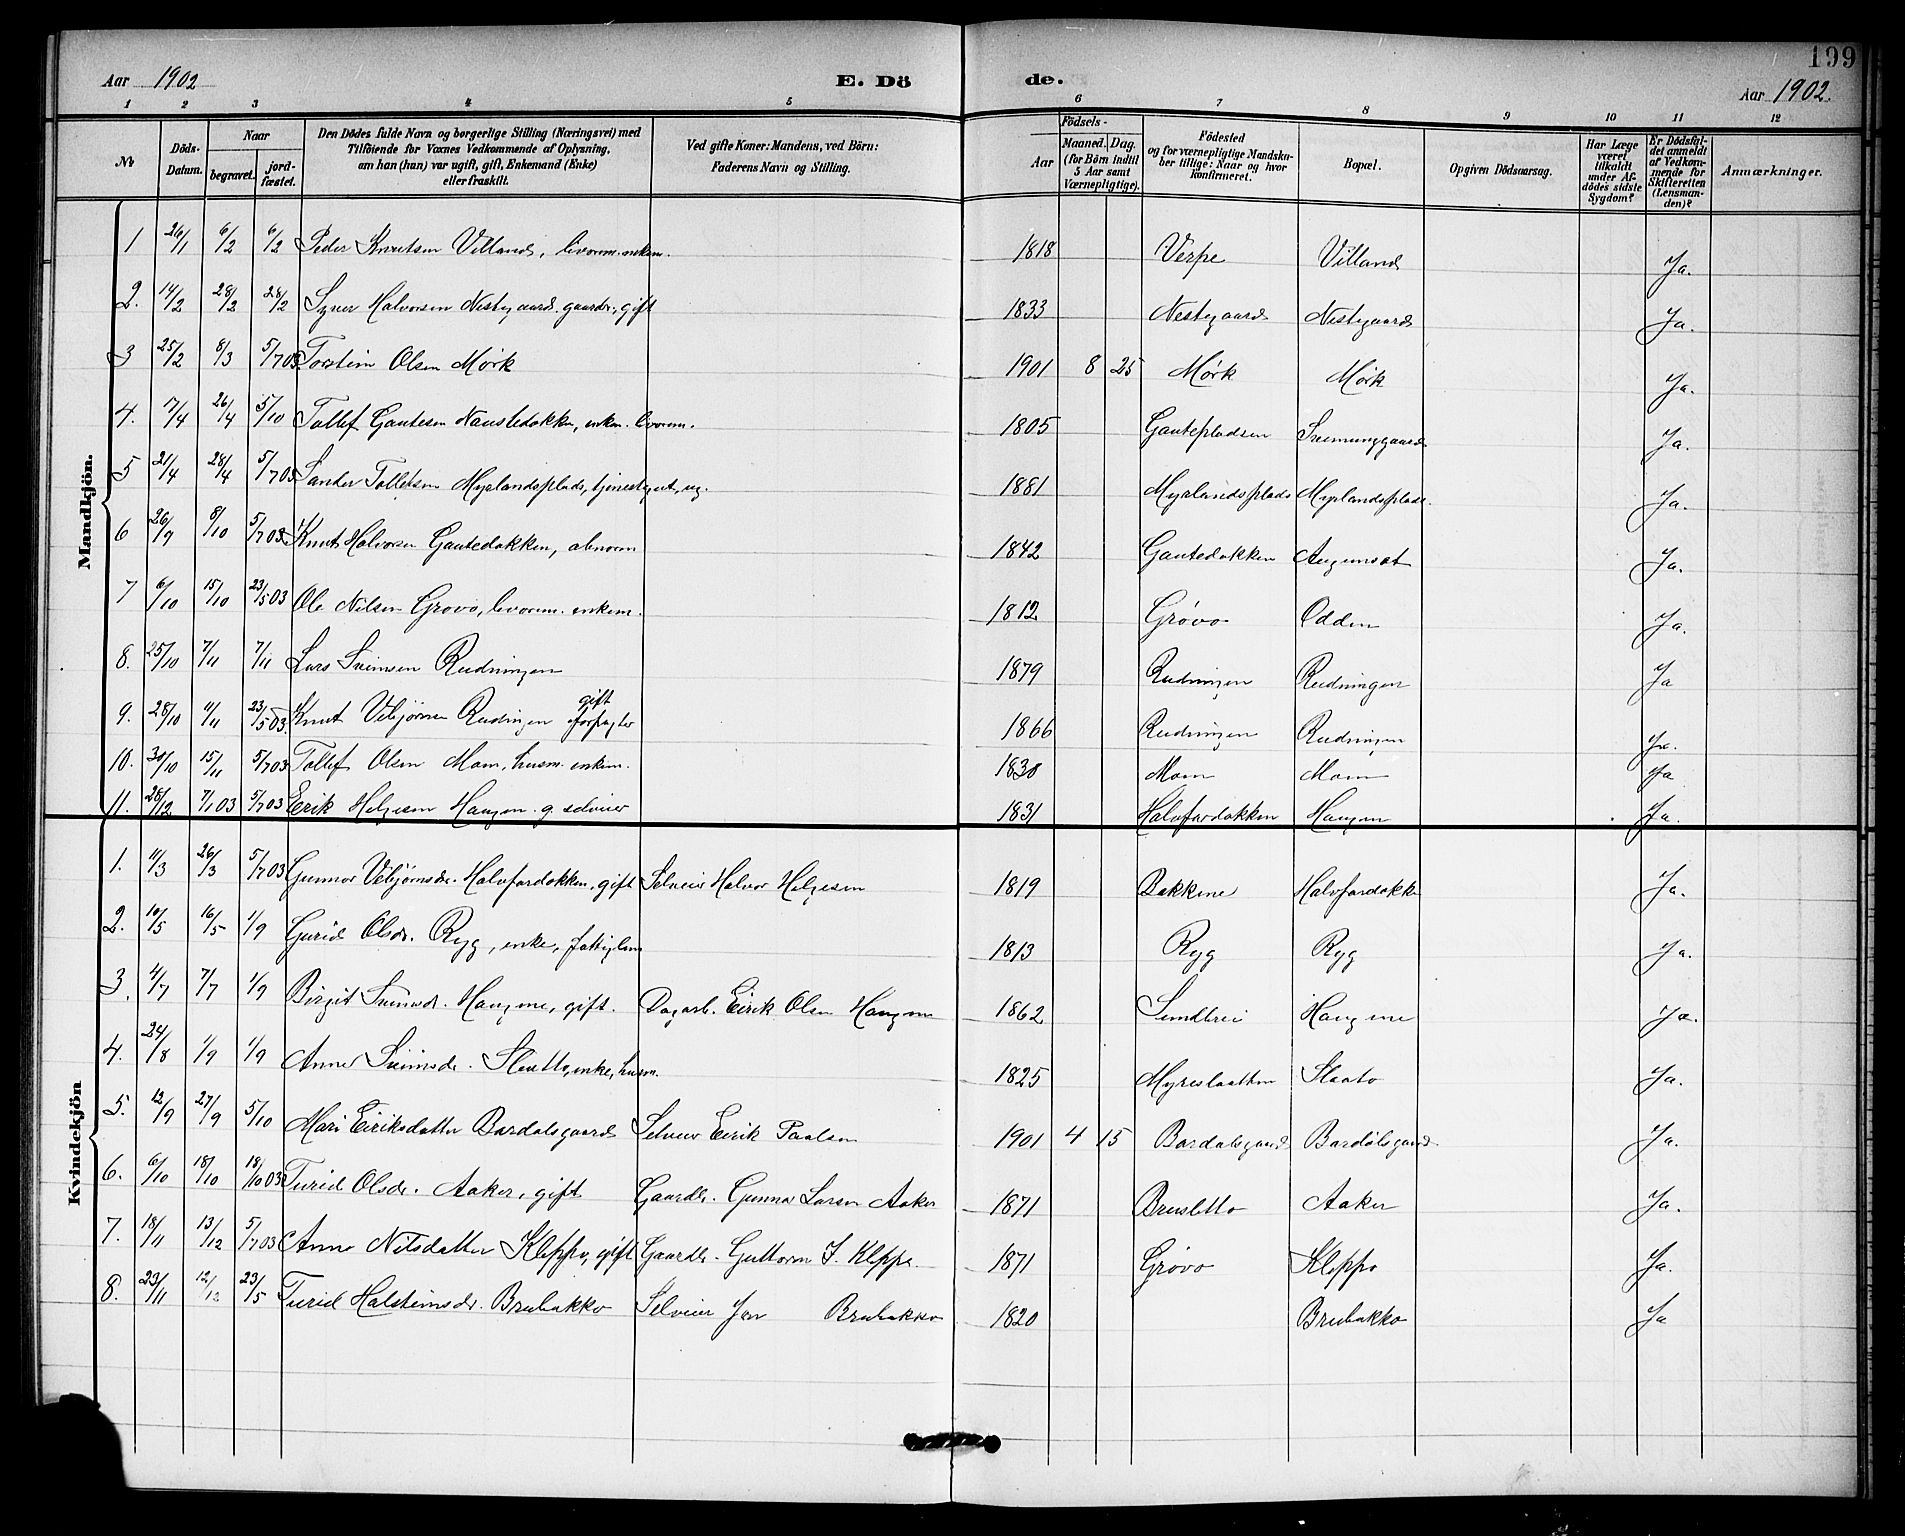 199
Aar 1902
E. Dö de.
Aar 1902.
1 2 3 4 5 6 7 8 9 10 11 12
No
Döds-Datum.
Naar begravet. jordfæstet.
Den Dödes fulde Navn og borgerlige Stilling (Næringsvei) med Tilföiende for Voxnes Vedkommende af Oplysning, om han (hun) var ugift, gift, Enkemand (Enke) eller fraskilt.
Ved gifte Koner: Mandens, ved Börn: Faderens Navn og Stilling.
Födsels-
Aar Maaned. Dag. (for Börn indtil 5 Aar samt Værnepligtige).
Födested og for værnepligtige Mandskaber tillige: Naar og hvor konfirmeret.
Bopæl.
Opgiven Dödsaarsag.
Har Læge været tilkaldt under Afdödes sidste Sygdom?
Er Dödsfaldet anmeldt af Vedkommende for Skifteretten (Lensmanden)?
Anmærkninger.
Mandkjön.
1 26/1 6/2 6/2 Peder Knutsen Villand, livorem. enkem. 1818 Verpe Villand Ja.
2. 14/2 28/2 28/2 Syver Halvorsen Nestegaard. gaardbr., gift 1833 Nestegaard Nestegaard Ja.
3 25/2 8/3 5/7 03 Torstein Olsen Mørk 1901 8 25 Mørk Mørk Ja.
4. 17/4 26/4 5/10 Tollef Gautesen Naustedokken, enkem. livorem. 1805 Gautepladsen Ja.
5 21/4 28/4 5/7 03 Sander Tollefsen Myrlandsplads, tjenestegut, ug. 1881 Myrlandsplads Myrlandsplads. Ja.
6 26/9 8/10 5/7 03 Knut Halvorsen Gautedokken, abnorm 1842 Gautedokken Ja.
7 6/10 15/10 23/5 03 Ole Nilsen Grøvo, livorem. enkem. 1812 Grøvo Odden Ja.
8. 25/10 7/11 7/11 Lars Sveinsen Rudningen 1879 Rudningen Rudningen Ja
9. 28/10 11/11 23/5 03. Knut Vebjørnsen Rudningen gift forpagter 1866 Rudningen Rudningen Ja.
10. 30/10 15/11 5/7 03 Tollef Olsen Moen, husm. enkem. 1830 Moen Moen Ja
11. 28/12 7/1 03 5/7 03 Eirik Helgesen Haugen. g. selveier 1831 Halvfardokken Haugen Ja.
Kvindekjön
1. 11/3 26/3 5/7 03 Gunnor Vebjørnsdr. Halvfardokken, gift Selveier Halvor Helgesen 1819 Bakkene Halvfardokke Ja.
2. 10/5 16/5 1/9 Gurid Olsdr. Ryg, enke, fattiglem 1813 Ryg Ryg Ja.
3. 4/7 7/7 1/9 Birgit Sveinsdr. Haugene, gift. Dagarb. Eirik Olsen Haugen 1862 Sundbrei Haugene Ja.
4. 24/8 1/9 1/9 Anne Sveinsdr. Slaatto, enke, husm. 1825 Myreslaatten Slaato Ja.
5. 12/9 27/9 5/10 Mari Eiriksdatter Bardalsgaard Selveier Eirik Paalsen 1901 4 15 Bardalsgaard Bardølsgaard Ja.
6. 6/10 18/10 18/10 03 Turid Olsdr. Aaker, gift Gaardbr. Gunnar Larsen Aaker 1871 Brusletto Aaker Ja.
7. 18/11 13/12 5/7 03 Anne Nilsdatter Kleppo, gift Gaardbr. Guttorm T. Kleppe 1871 Grøvo Kleppo Ja.
8. 23/11 12/12 23/5 Turid Halsteinsdr. Brubakko Selveier Jon Brubakko 1820 Brubakko Ja